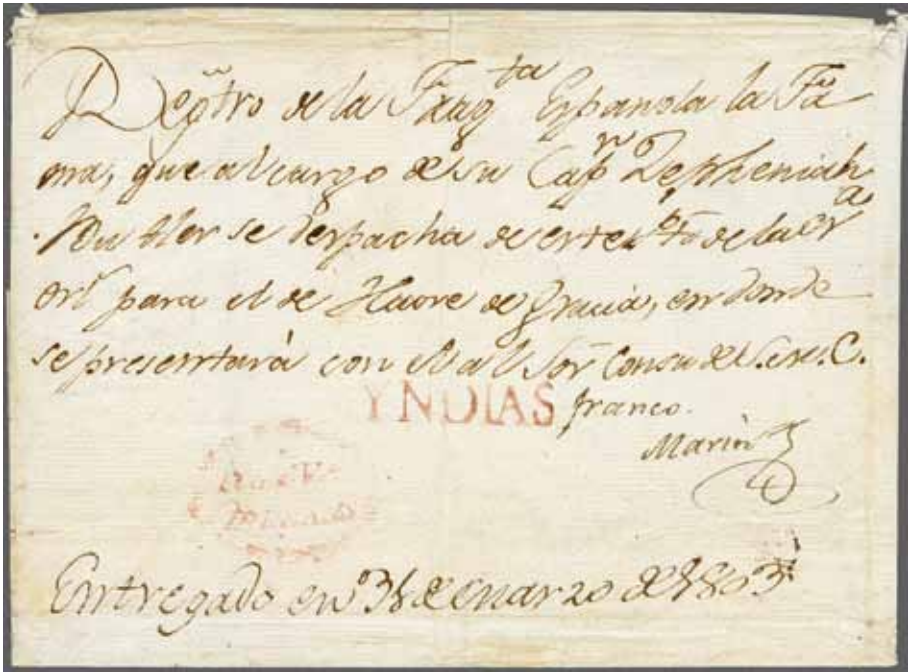 Regtro de la Fragta Española la Fa
ma, que al cargo de su Capn Zepheniah
se despacha de este Pto de la
para el de Havre de Gracia, en donde
se presentará con él al Sor Consul de S.M.C.
YNDIAS franco.
Marin
Entregado en de marzo de 1803